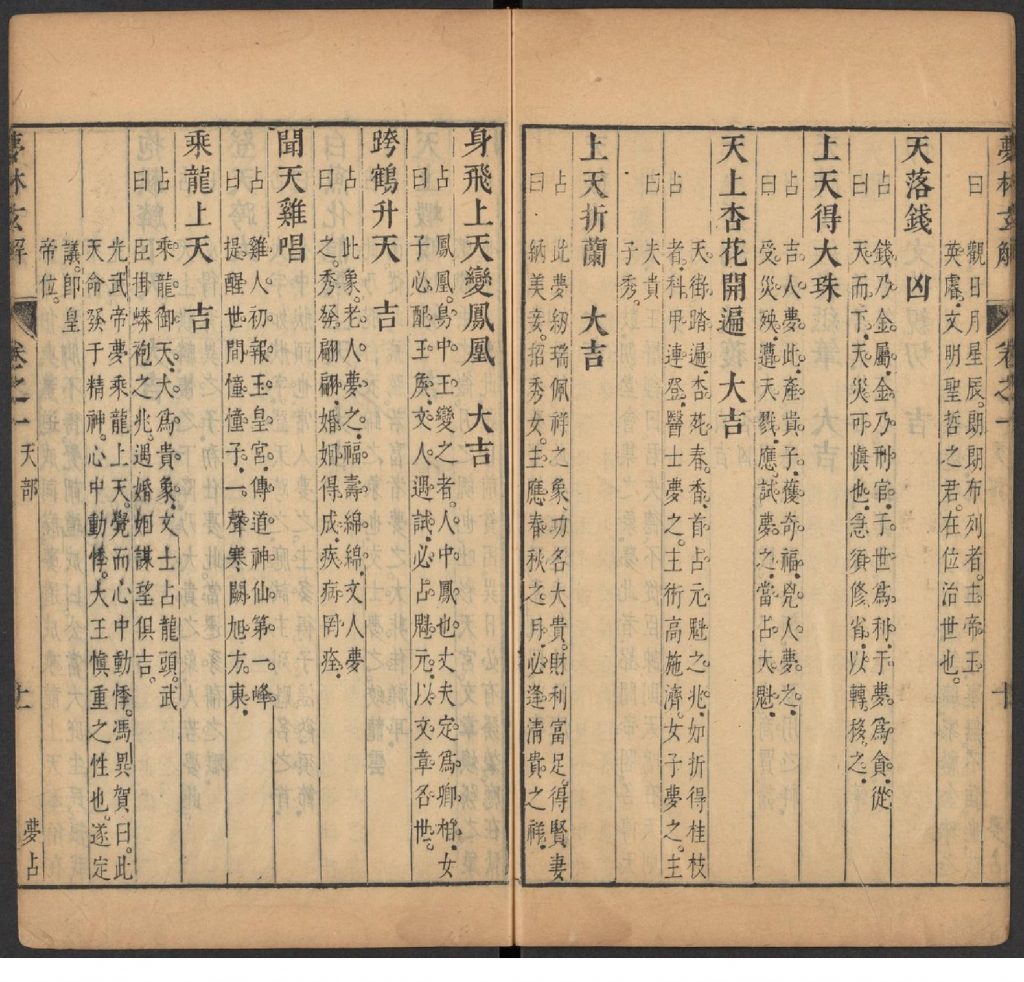 夢林玄解 卷之一 十
觀日月星辰。朗朗布列者。主帝王
曰 英睿。文明聖哲之君。在位治世也。
天落錢 凶
占 錢乃金屬。金乃刑官。于世爲利。于夢爲貪。從
曰 天而下。天災可愼也。急須修省。以轉移之。
上天得大珠
占 吉人夢此。產貴子。獲奇福。凶人夢之。
曰 受災殃。遭天戮。應試夢之。當占大魁。
天上杏花開遍 大吉
天街踏遍。杏花春香。首占元魁之兆。如折得桂枝
占 者。科甲連登。醫士夢之。主術高施濟。女子夢之。主
曰 夫貴
子秀。
上天折蘭 大吉
占 此夢紉瑞佩祥之象。功名大貴。財利富足。得賢妻
曰 納美妾。招秀女。主應春秋之月。必逢清貴之祥。
身飛上天變鳳凰 大吉
占 鳳凰。鳥中王變之者。人中鳳也。丈夫定爲卿相。女
曰 子必配王矦。文人遇試。必占魁元。以文章名世。
跨鶴升天 吉
占 此象。老人夢之。福壽綿綿。文人夢
曰 之。秀發翩翩。婚姻得成。疾病罔痊。
聞天雞唱
占 雞人初報玉皇宮。傳道神仙第一峰
曰 提醒世間憧憧子。一聲寒闕旭方東。
乘龍上天 吉
占 乘龍御天。大爲貴象。文士占龍頭。武
曰 臣掛蟒袍之兆。遇婚姻謀望俱吉。
光武帝夢乘龍上天。覺而心中動悸。馮異賀曰。此
天命發于精神。心中動悸。大王愼重之性也。遂定
議。卽皇
帝位。
夢林玄解 卷之一 天部 十一 夢占